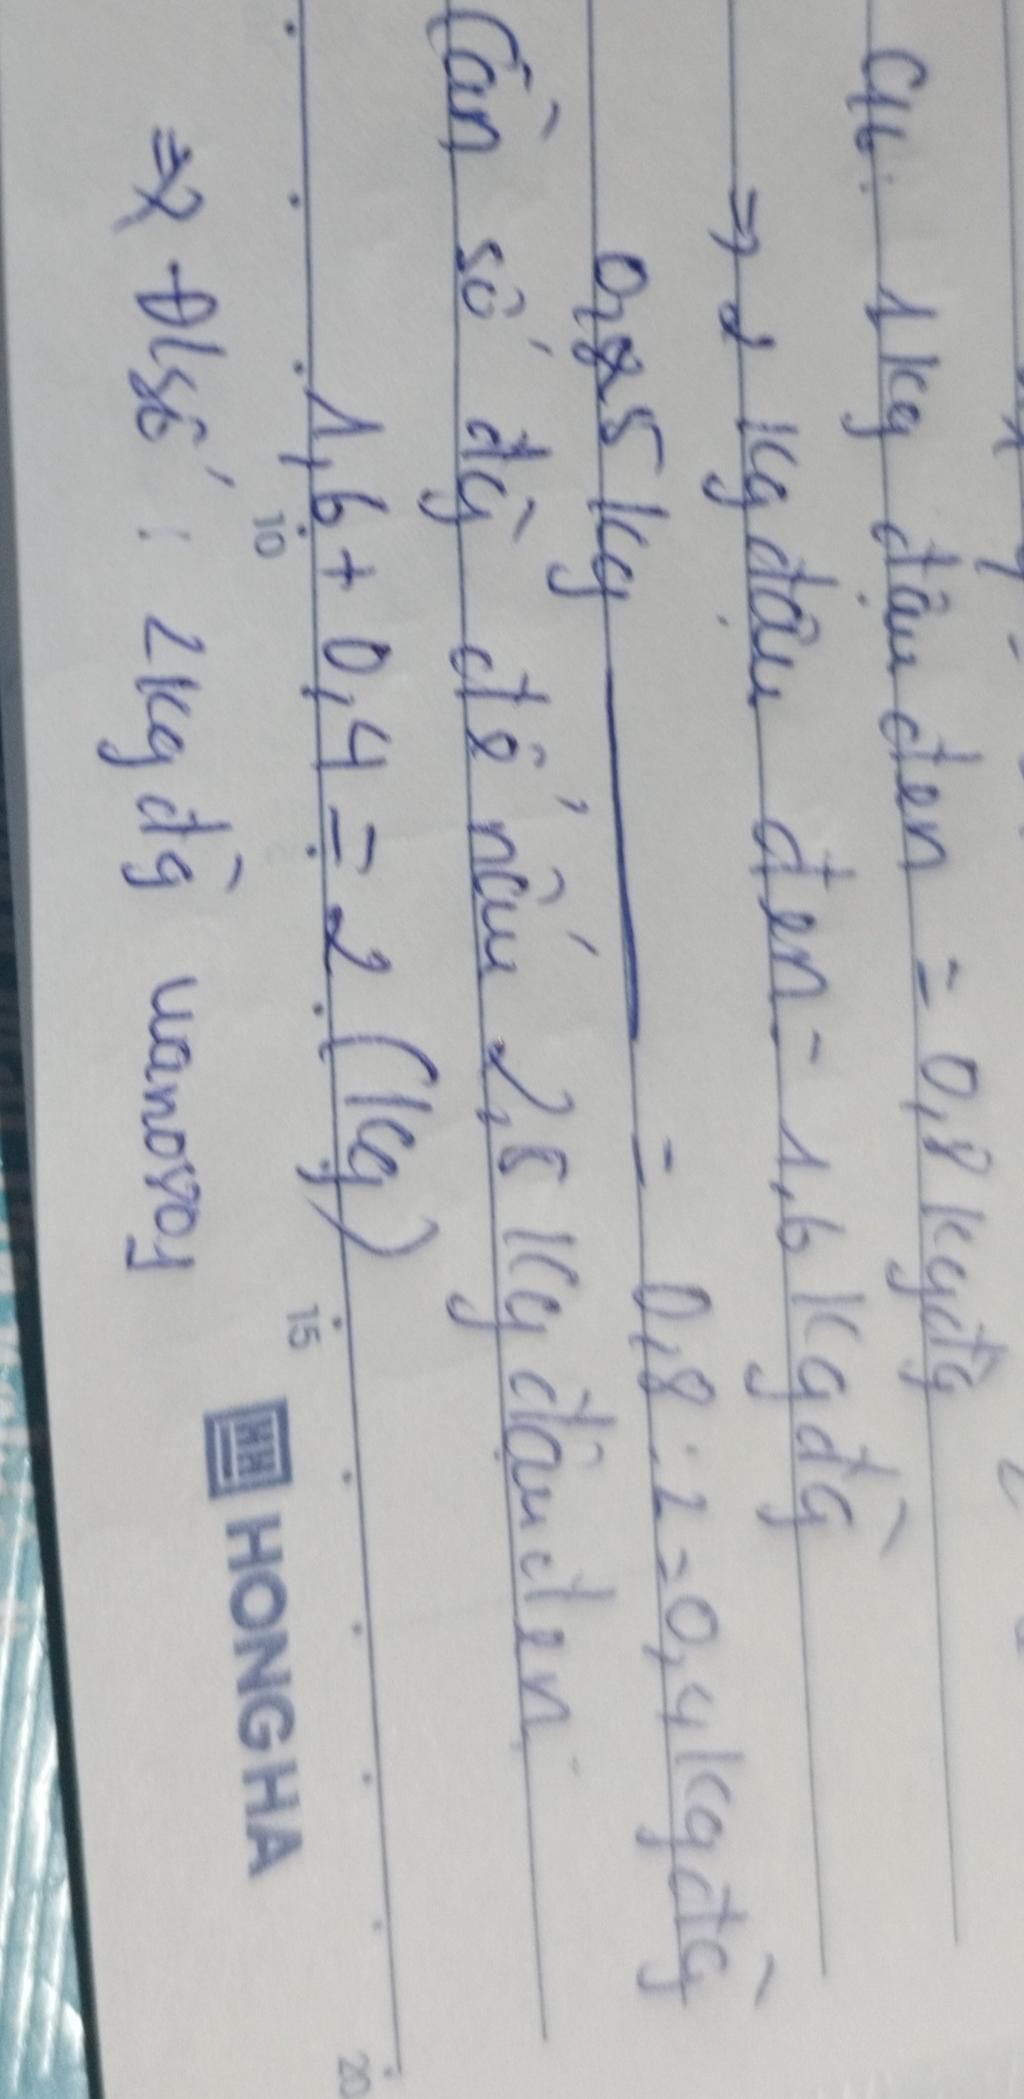 C4b: 1kg đậu đen = 0,8 kg đg
⇒ 2 kg đậu đen = 1,6 kg đg̀
0,5 kg = 0,8 : 2 = 0,4 kg đg̀
Cần số đg̀ để nấu 2,5 kg đậu đen
1,6 + 0,4 = 2 (kg)
⇒ Đ/số : 2kg đg̀
10
15
20
HH HONG HA